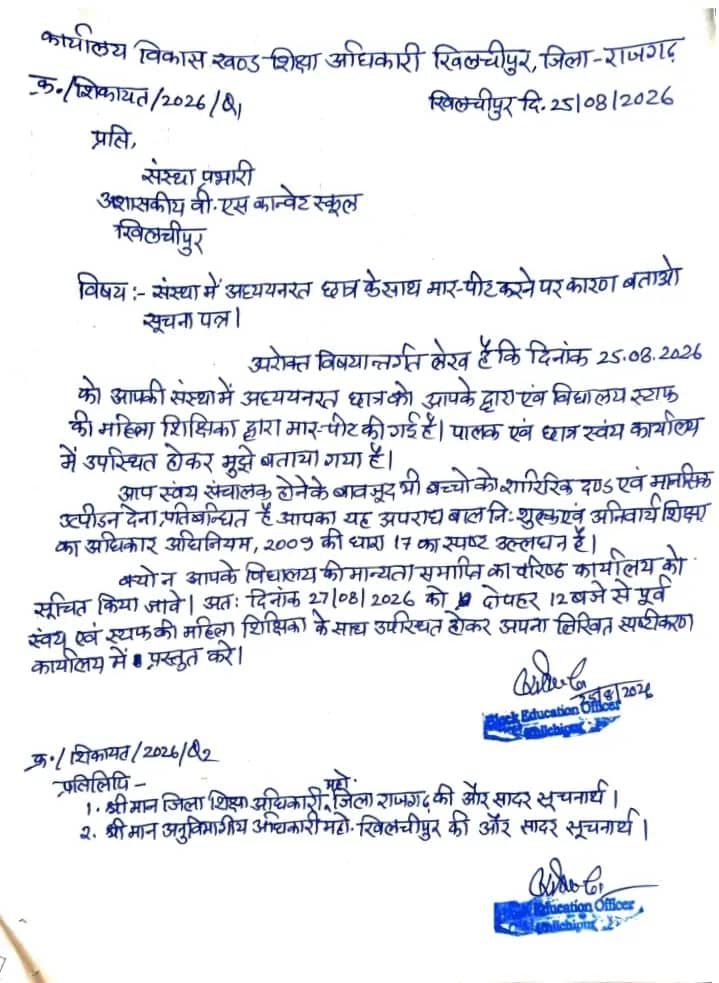 कार्यालय विकास खण्ड शिक्षा अधिकारी खिलचीपुर, जिला-राजगढ़
क्र./शिकायत/2026/Q1
खिलचीपुर दि. 25/08/2026
प्रति,
संस्था प्रभारी
अशासकीय वी.एस कान्वेट स्कूल
खिलचीपुर
विषय :- संस्था में अध्ययनरत छात्र के साथ मार-पीट करने पर कारण बताओ
सूचना पत्र।
उपरोक्त विषयान्तर्गत लेख है कि दिनांक 25.08.2026
को आपकी संस्था में अध्ययनरत छात्र को आपके द्वारा एवं विद्यालय स्टाफ
की महिला शिक्षिका द्वारा मार-पीट की गई है। पालक एवं छात्र स्वंय कार्यालय
में उपस्थित होकर मुझे बताया गया है।
आप स्वंय संचालक होने के बावजूद भी बच्चो को शारिरिक दण्ड एवं मानसिक
उत्पीडन देना, प्रतिबन्धित है आपका यह अपराध बाल निःशुल्क एवं अनिवार्य शिक्षा
का अधिकार अधिनियम, 2009 की धारा 17 का स्पष्ट उल्लघन है।
क्यो न आपके विद्यालय की मान्यता समाप्ति का वरिष्ठ कार्यालय को
सूचित किया जावे। अतः दिनांक 27/08/2026 को दोपहर 12 बजे से पूर्व
स्वंय एवं स्टाफ की महिला शिक्षिका के साथ उपस्थित होकर अपना लिखित स्पष्टीकरण
कार्यालय में प्रस्तुत करे।
25/8/2026
Block Education Officer
Khilchipur
क्र./शिकायत/2026/Q2
प्रतिलिपि -
1. श्रीमान जिला शिक्षा अधिकारी महो. जिला राजगढ़ की और सादर सूचनार्थ।
2. श्रीमान अनुविभागीय अधिकारी महो. खिलचीपुर की और सादर सूचनार्थ।
Block Education Officer
Khilchipur